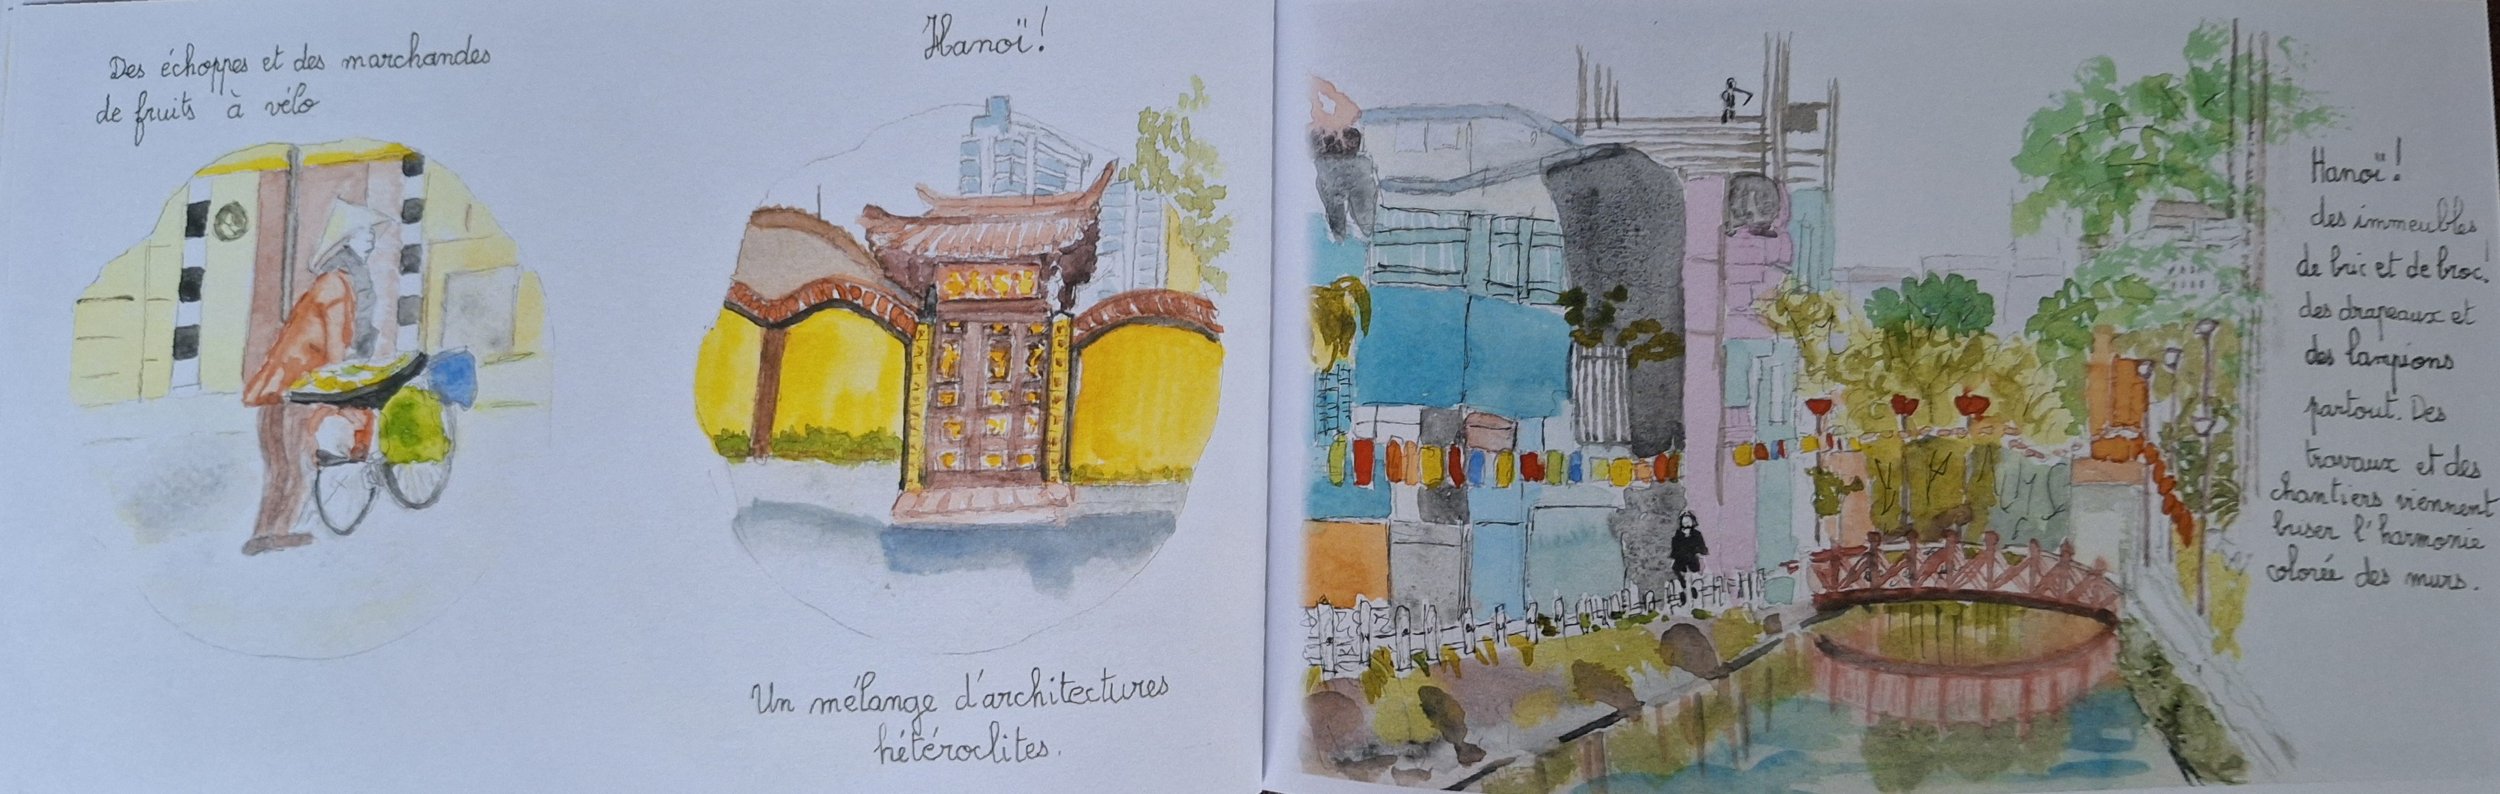 Des échoppes et des marchandes
de fruits à vélo
Hanoï!
Un mélange d'architectures
hétéroclites.
Hanoï!
des immeubles
de bric et de broc!
des drapeaux et
des lampions
partout. Des
travaux et des
chantiers viennent
briser l'harmonie
colorée des murs.